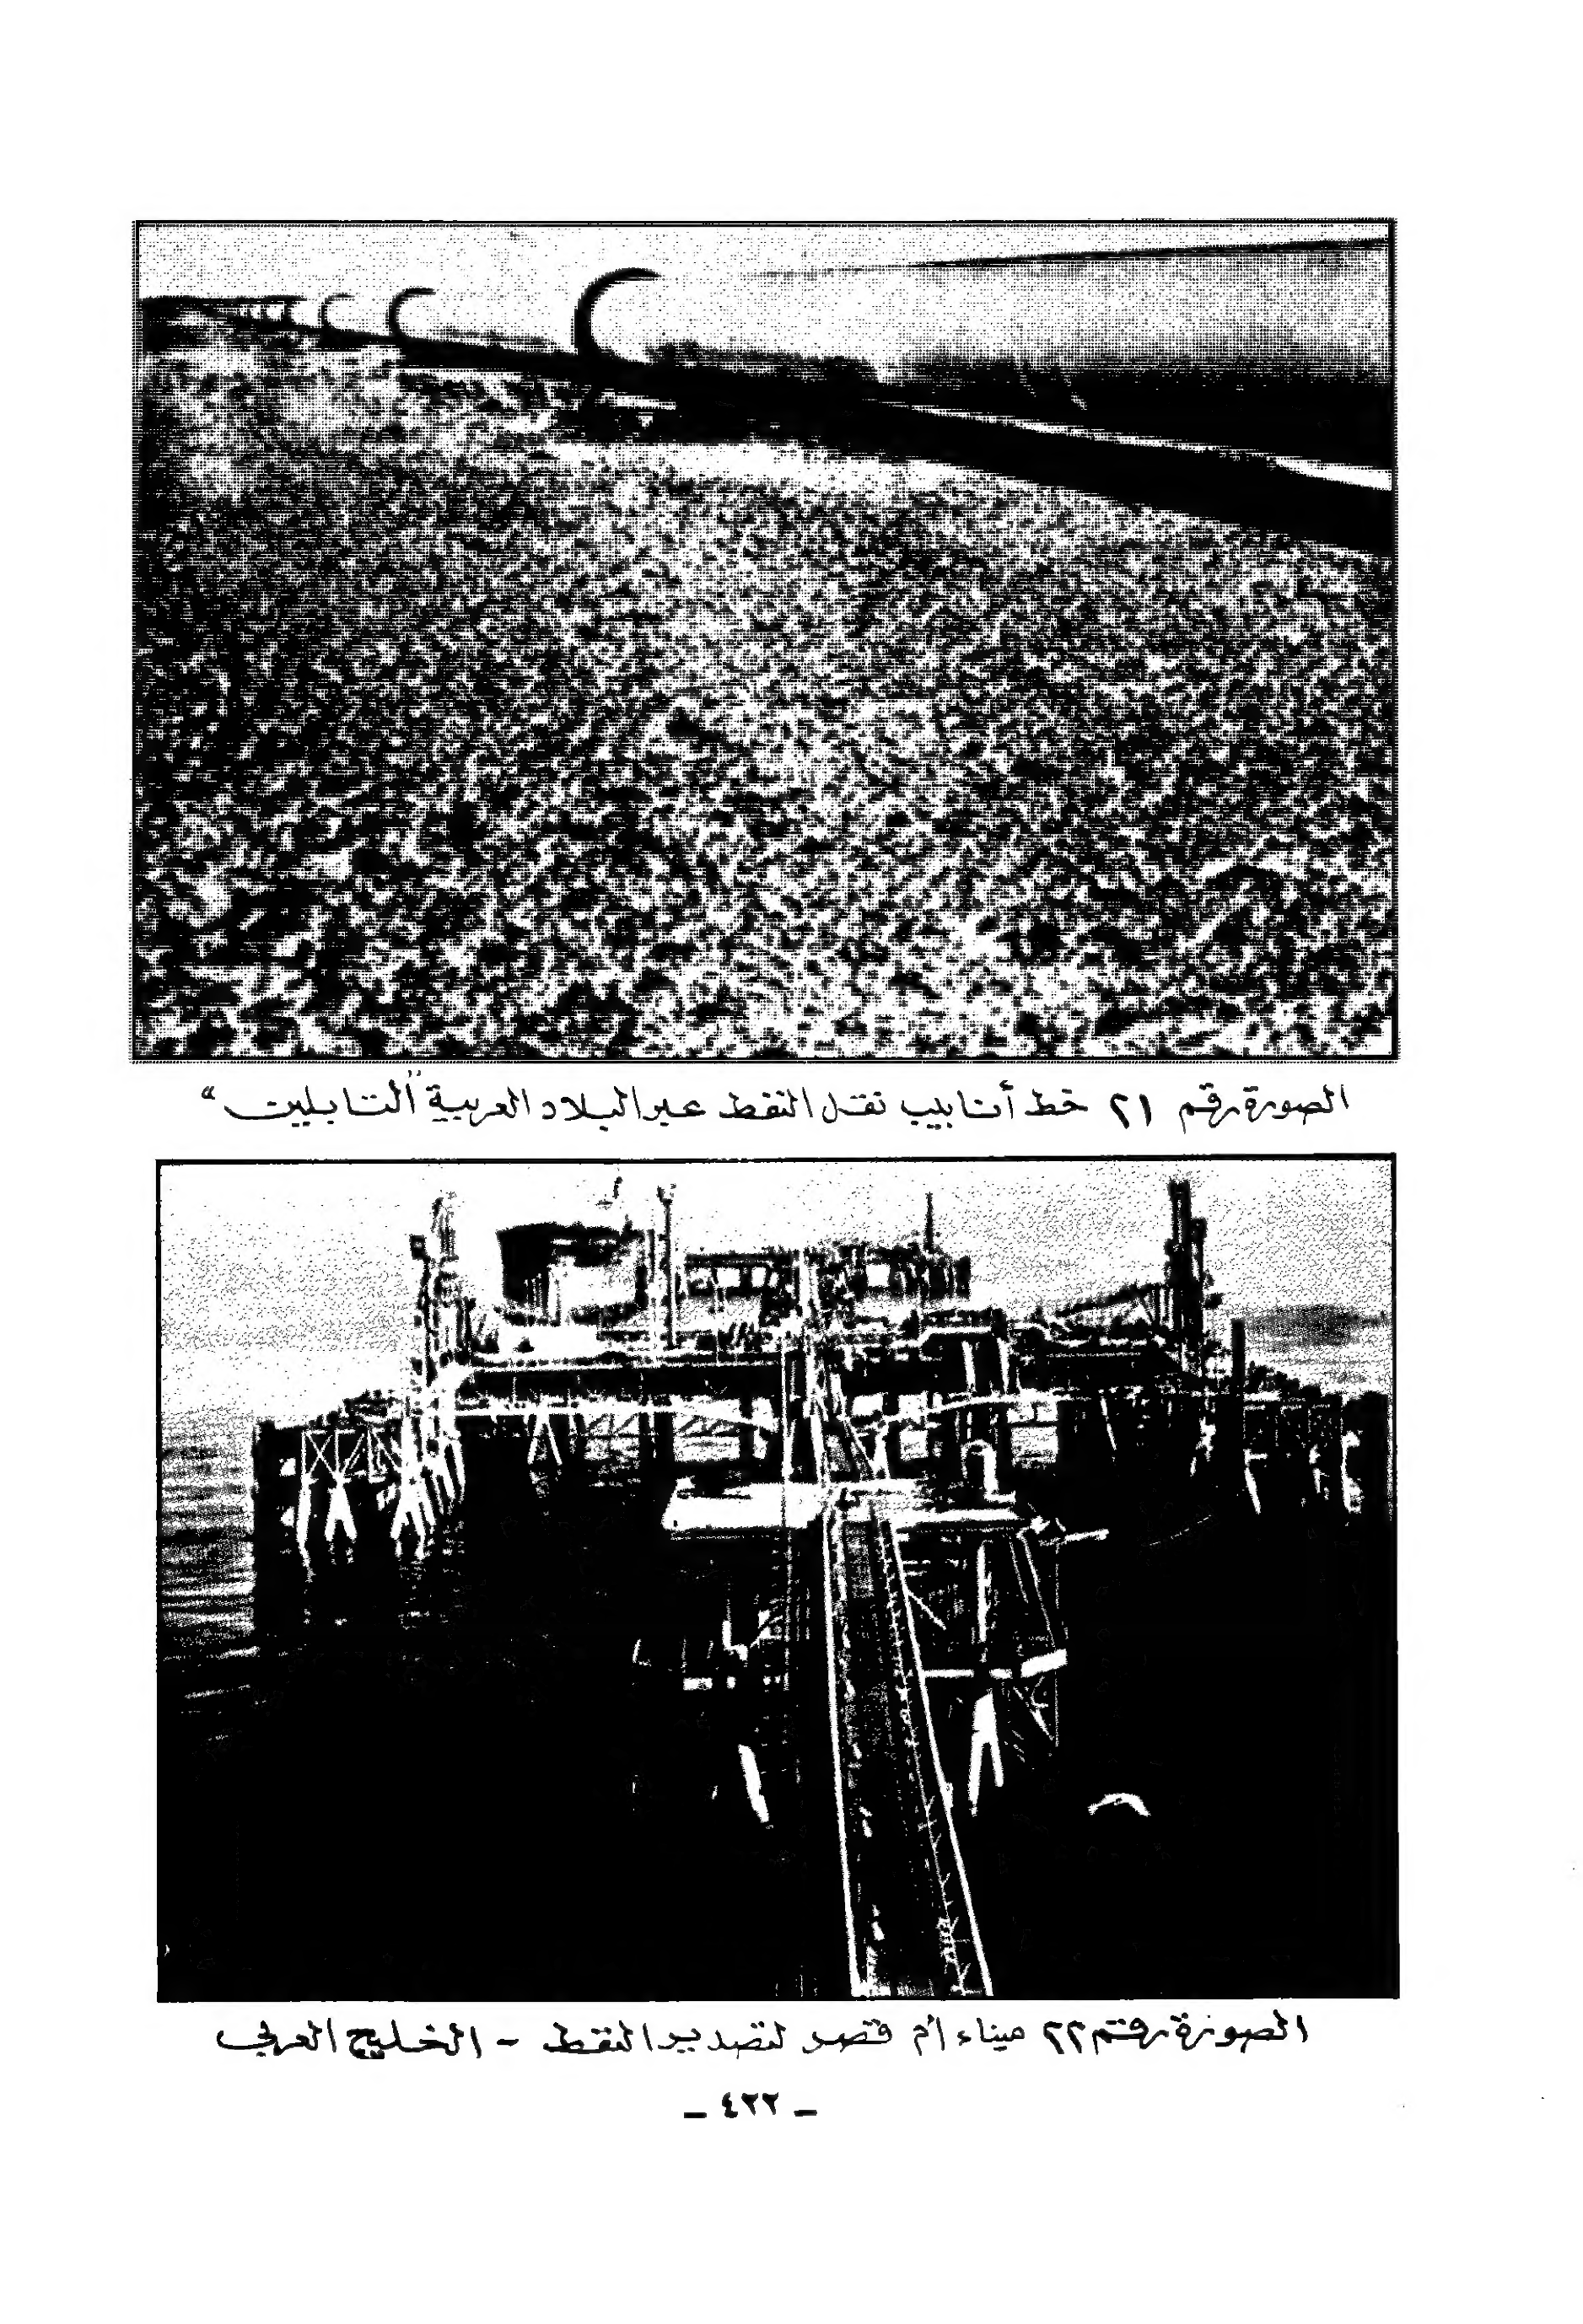 الصورة رقم ٢١ خط أنابيب نقل النفط عبر البلاد العربية "التابلين"
الصورة رقم ٢٢ ميناء أم قصر لتصدير النفط - الخليج العربي
- ٤٢٢ -